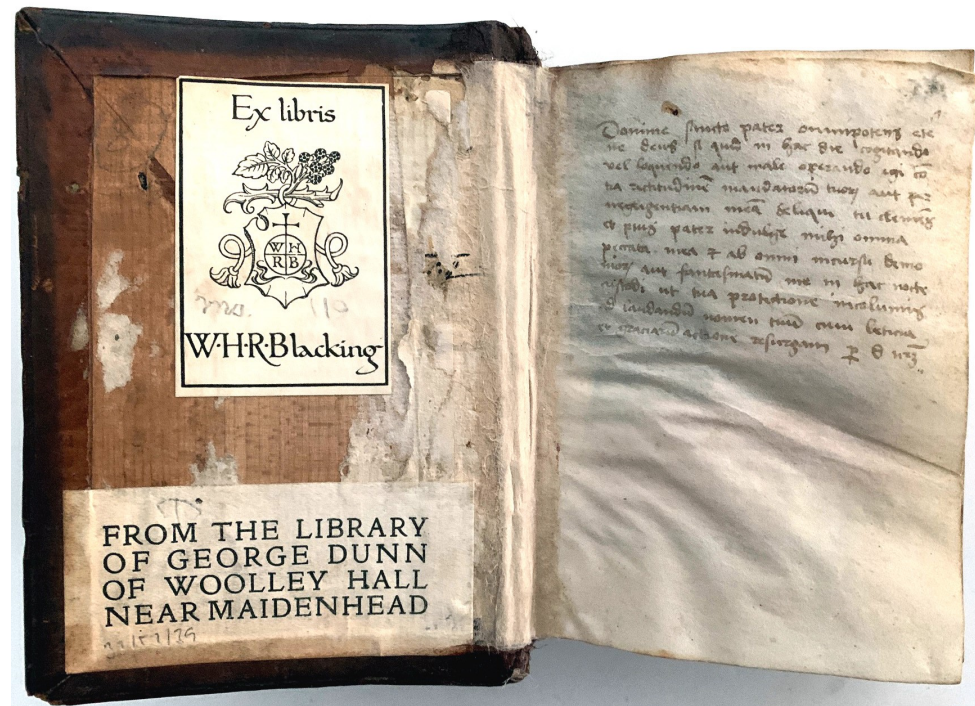 Ex libris
W H
R B
W·H·R·Blacking
FROM THE LIBRARY
OF GEORGE DUNN
OF WOOLLEY HALL
NEAR MAIDENHEAD
Domine sancte pater omnipotens ete
ne deus si quid in hac die cogitando
vel loquendo aut male operando
rectitudinē mandatorū tuorū aut per
negligentiam meā deliqui tu clemens
et pius pater indulge mihi omnia
peccata mea et ab omni incursu demo
aut fantasmatū me in hac nocte
custodi ut tua protectione incolumis
ad laudandū nomen tuū cum leticia
et graciarū actione resurgam